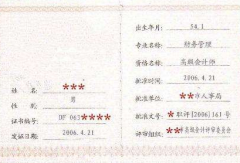 姓名 ***
性别 男
证书编号: DF 063****
发证日期: 2006.4.21
出生年月: 54.1
专业名称: 财务管理
资格名称: 高级会计师
批准时间: 2006.4.21
批准单位: **市人事局
批准文号: *职评[2006]161号
评审组织: **高级会计评审委员会